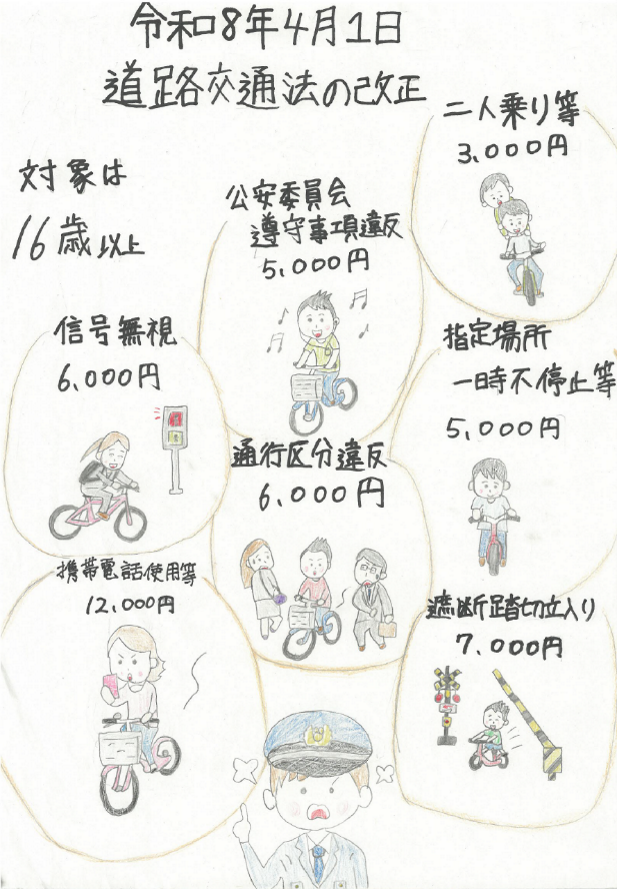 令和8年4月1日
道路交通法の改正
対象は
16歳以上
二人乗り等
3,000円
公安委員会
遵守事項違反
5,000円
信号無視
6,000円
指定場所
一時不停止等
5,000円
通行区分違反
6,000円
携帯電話使用等
12,000円
遮断踏切立入り
7,000円